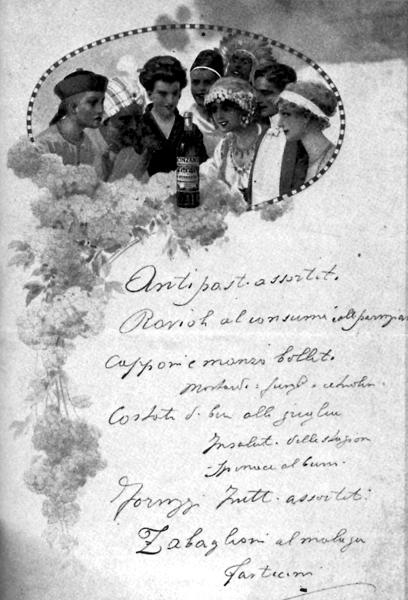 CINZANO
Antipasti assortiti
Ravioli al consumè colla parmigiano
Capponi e manzo bolliti
Mostarda: funghi e cetriolini
Costate di bue alla griglia
Insalate della stagione
Spinaci al burro
Formaggi Frutti assortiti
Zabaglioni al malaga
Pasticcini